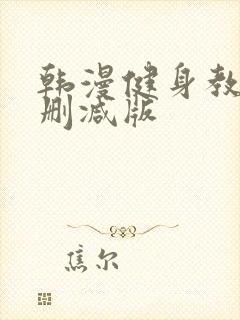 韩漫健身教
删减版
焦尔